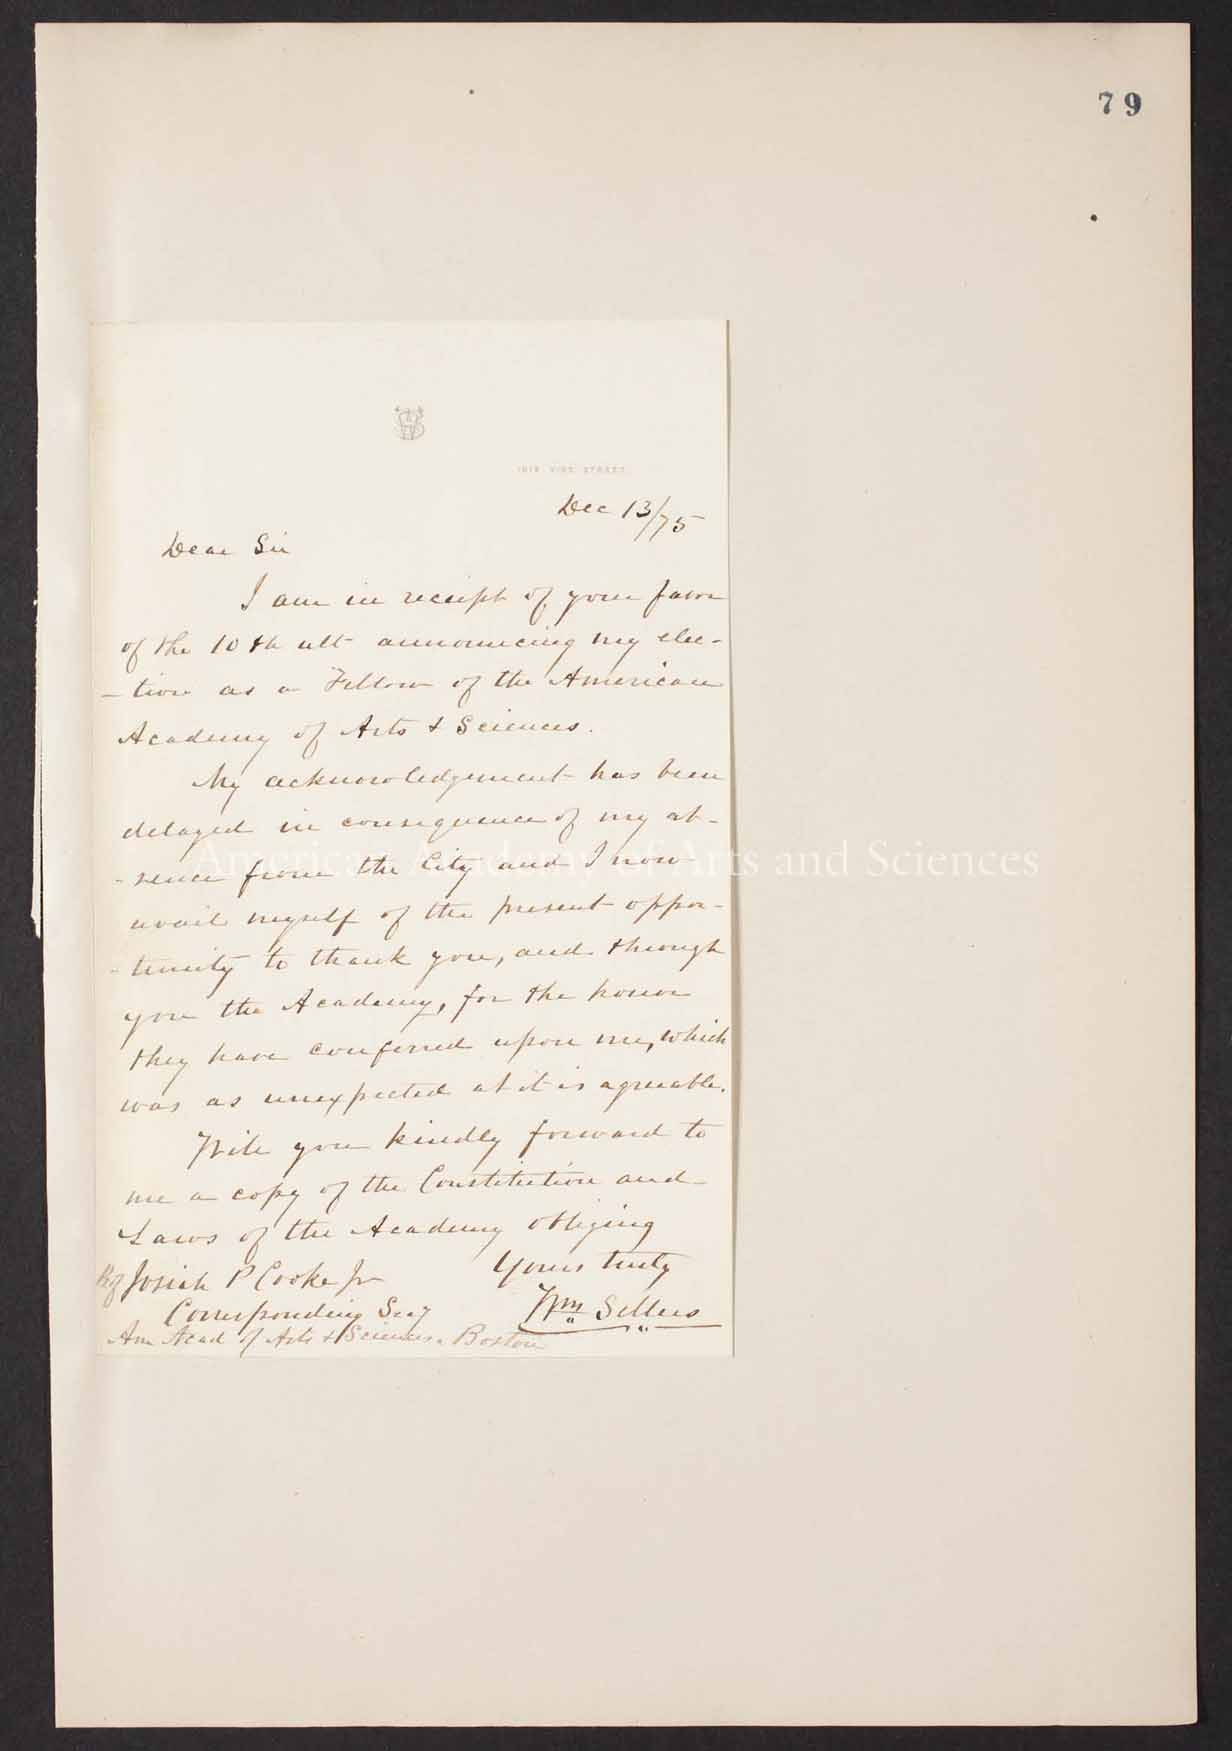 79
VINE STREET
Dec 13/75
Dear Sir
I am in receipt of your favor
of the 10th ult announcing my elec-
-tion as a Fellow of the American
Academy of Arts & Sciences.
My acknowledgement has been
delayed in consequence of my ab-
-sence from the City and I now
avail myself of the present oppor-
-tunity to thank you, and through
you the Academy, for the honor
they have conferred upon me, which
was as unexpected as it is agreeable.
Will you kindly forward to
me a copy of the Constitution and
Laws of the Academy obliging
Yours truly
Wm Sellers
Prof Josiah P Cooke Jr
Corresponding Secy
Am Acad of Arts & Sciences. Boston
American Academy of Arts and Sciences